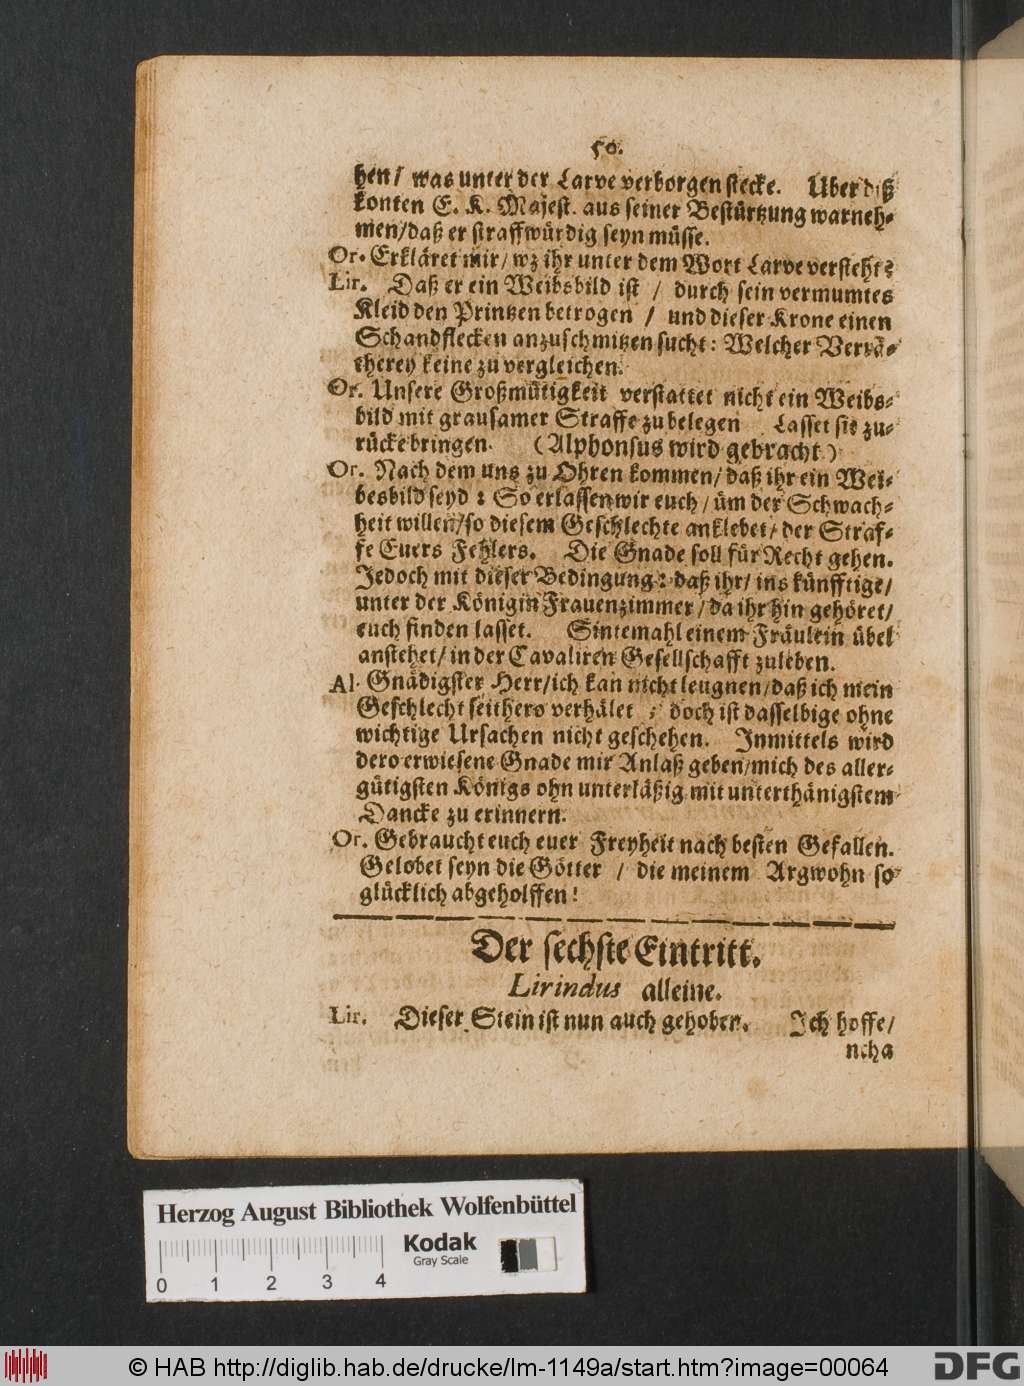 50.
hen/ was unter der Larve verborgen stecke. Uber diß
konten E. K. Majest. aus seiner Bestürtzung warneh-
men/daß er straffwürdig seyn müsse.
Or. Erkläret mir/ wz ihr unter dem Wort Larve versteht?
Lir. Daß er ein Weibsbild ist / durch sein vermumtes
Kleid den Printzen betrogen / und dieser Krone einen
Schandflecken anzuschmitzen sucht: Welcher Verrä-
therey keine zu vergleichen.
Or. Unsere Großmütigkeit verstattet nicht ein Weibs-
bild mit grausamer Straffe zu belegen Lasset sie zu-
rücke bringen. (Alphonsus wird gebracht.)
Or. Nach dem uns zu Ohren kommen/ daß ihr ein Wei-
besbild seyd: So erlassen wir euch/ üm der Schwach-
heit willen/so diesem Geschlechte anklebet/ der Straf-
fe Euers Fehlers. Die Gnade soll für Recht gehen.
Jedoch mit dieser Bedingung: daß ihr/ ins künfftige/
unter der Königin Frauenzimmer/ da ihr hin gehöret/
euch finden lasset. Sintemahl einem Fräulein übel
anstehet/ in der Cavaliren Gesellschafft zuleben.
Al. Gnädigster Herr/ich kan nicht leugnen/daß ich mein
Geschlecht seithero verhälet; doch ist dasselbige ohne
wichtige Ursachen nicht geschehen. Inmittels wird
dero erwiesene Gnade mir Anlaß geben/mich des aller-
gütigsten Königs ohn unterläßig mit unterthänigstem
Dancke zu erinnern.
Or. Gebraucht euch euer Freyheit nach besten Gefallen.
Gelobet seyn die Götter / die meinem Argwohn so
glücklich abgeholffen!
Der sechste Eintritt.
Lirindus alleine.
Lir. Dieser Stein ist nun auch gehoben. Ich hoffe/
ncha
Herzog August Bibliothek Wolfenbüttel
Kodak
Gray Scale
0 1 2 3 4
© HAB http://diglib.hab.de/drucke/lm-1149a/start.htm?image=00064
DFG